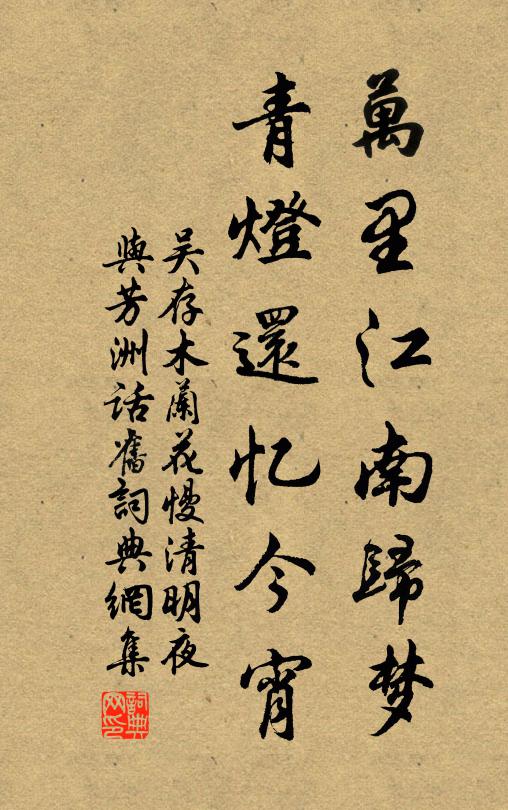 萬里江南歸梦
青燈還忆今宵
吴存木蘭花慢清明夜
與芳洲話舊詞典網集
詞典
网印